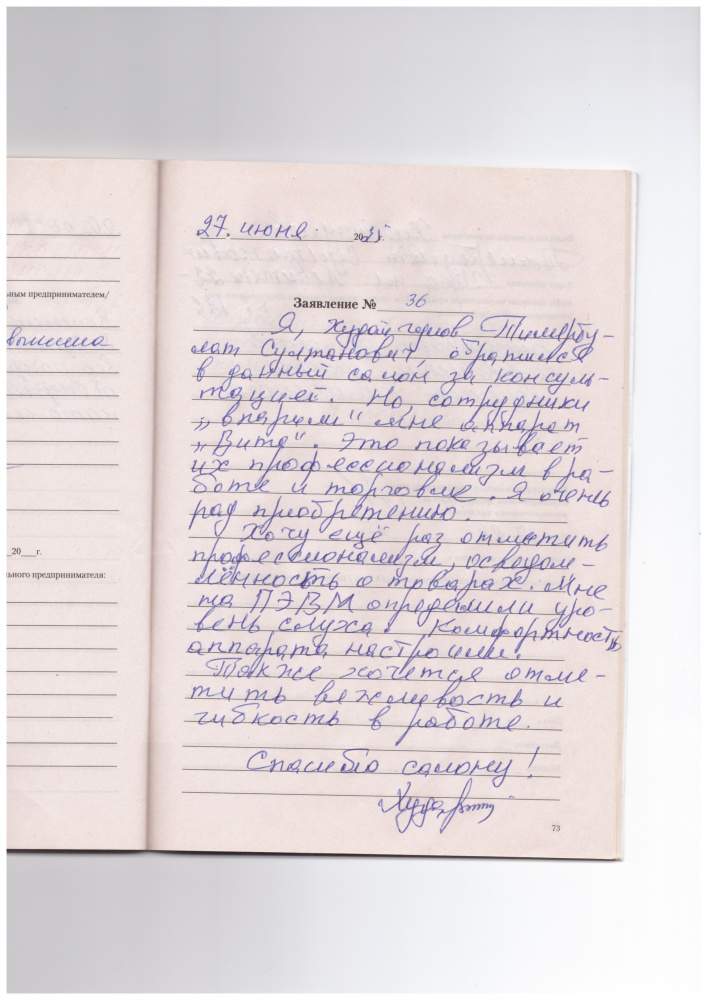 льным предпринимателем/
20 г.
льного предпринимателя:
27. июня 20 г.
Заявление № 36
Я, Тимербу-
лат Султанович, обратился
в данный салон за консуль-
тацией. Но, сотрудники
„впарили" мне аппарат
„Вита". Это показывает
их профессионализм в ра-
боте и торговле. Я очень
рад приобретению.
Хочу ещё раз отметить
профессионализм, осведом-
лённость о товарах. Мне
на ПЭВМ определили уро-
вень слуха. Комфортность
аппарата настроили.
Также хочется отме-
тить вежливость и
гибкость в работе.
Спасибо салону!
73